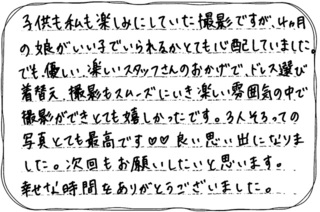 子供も私も楽しみにしていた撮影ですが、4ヵ月
の娘がいい子でいられるかとても心配していました。
でも、優しい、楽しいスタッフさんのおかげで、ドレス選び
着替え、撮影もスムーズにいき楽しい雰囲気の中で
撮影ができとても嬉しかったです。3人そろっての
写真とても最高です♡♡良い思い出になりま
した。次回もお願いしたいと思います。
幸せな時間をありがとうございました。